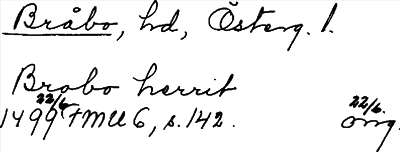 Bråbo, hd, Österg. l.
Brabo herrit
1499 22/6 FMU 6, s. 142. 22/6. orig.